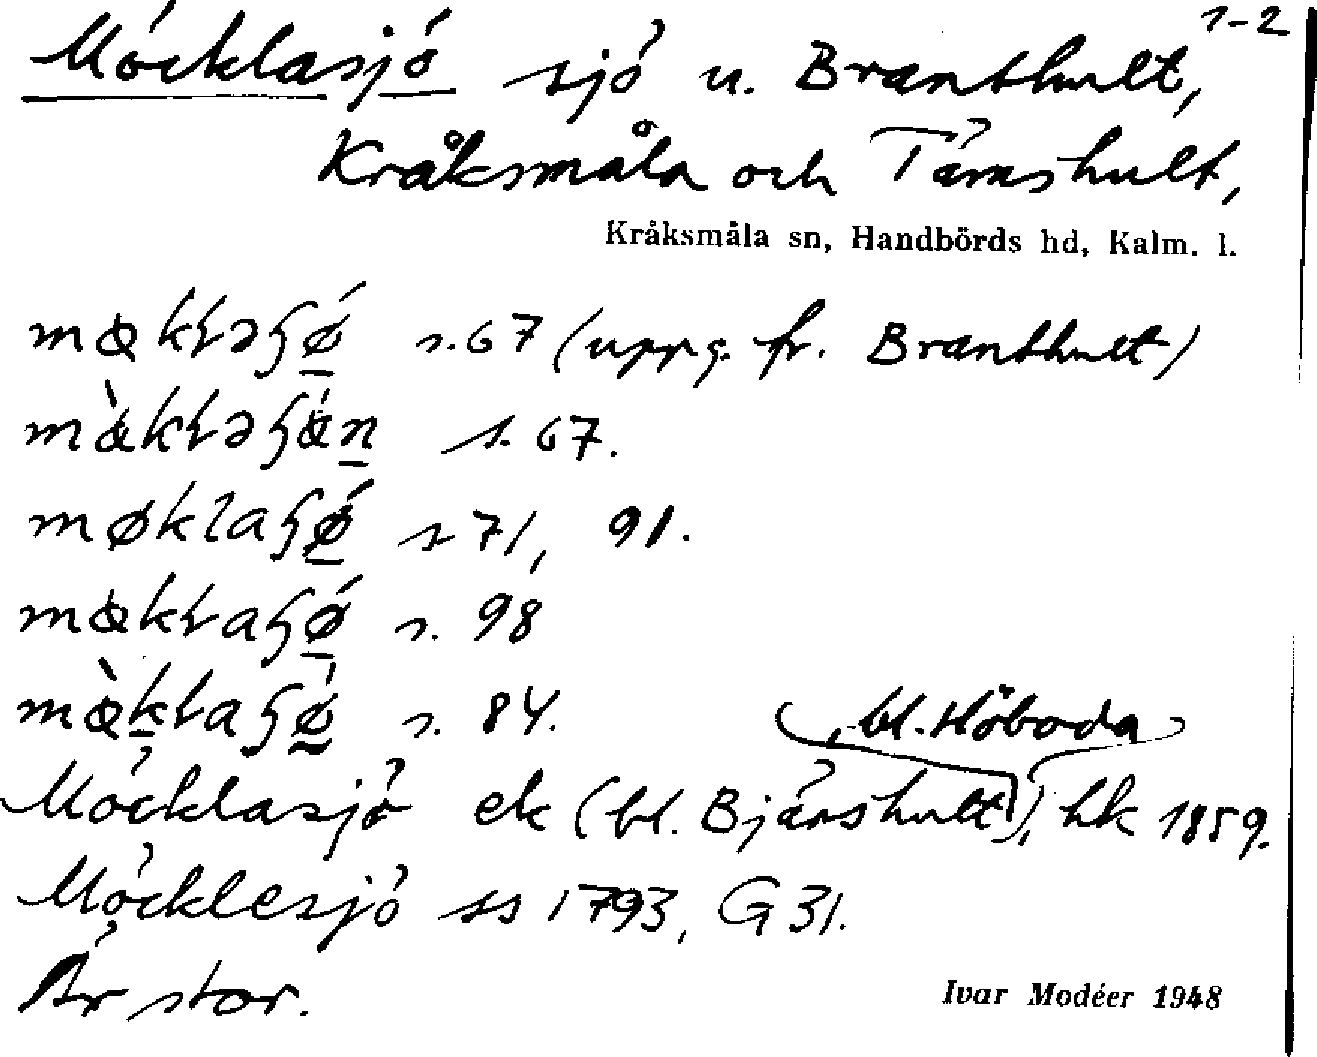 1-2
Möcklasjö sjö u. Branthult,
Kråksmåla och Tämshult,
Kråksmåla sn, Handbörds hd, Kalm. l.
s. 67 (uppg. fr. Branthult)
s. 67.
s. 71, 91.
s. 98
s. 84.
, bl. Höboda
Möcklasjö ek (bl. Bjärshult), hk 1859.
Möcklesjö ss 1793, G 31.
Är stor.
Ivar Modéer 1948